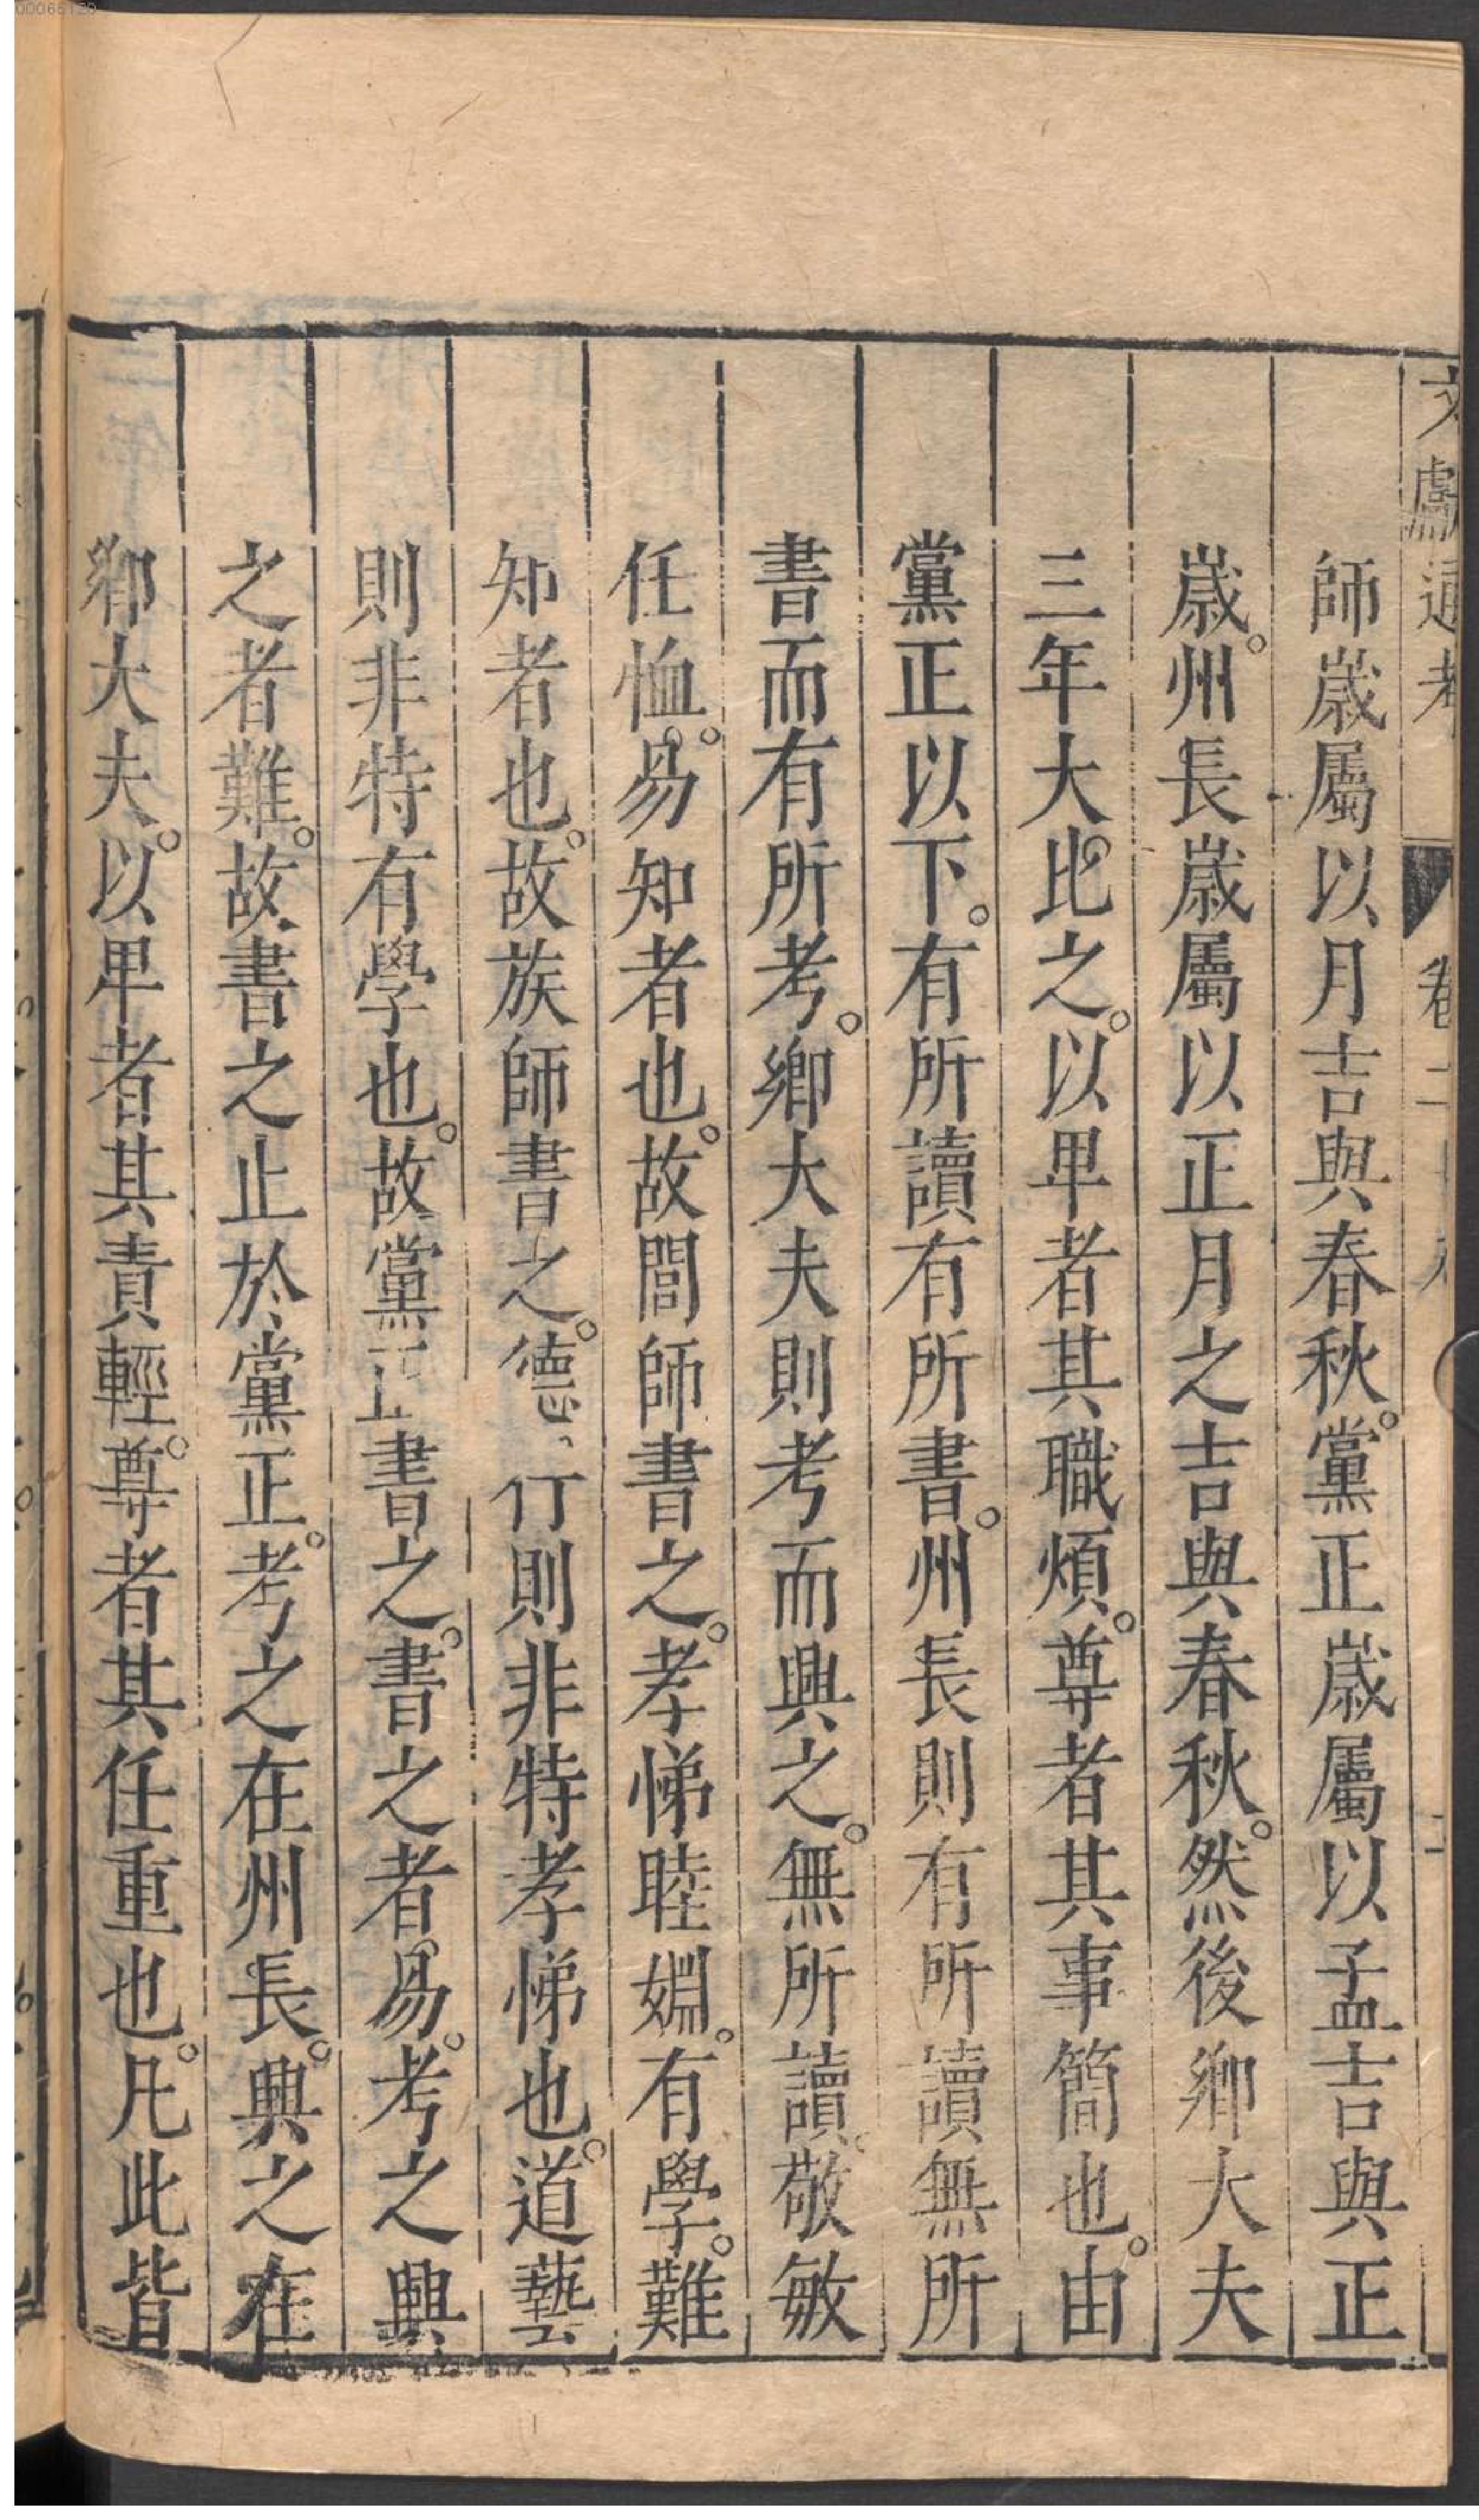 00066120
文獻通考 卷二
師歲屬以月吉與春秋。黨正歲屬以孟吉與正
歲。州長歲屬以正月之吉與春秋。然後鄉大夫
三年大比之。以卑者其職煩。尊者其事簡也。由
黨正以下。有所讀有所書。州長則有所讀無所
書而有所考。鄉大夫則考而興之。無所讀。敬敏
任恤。易知者也。故閭師書之。孝悌睦婣。有學。難
知者也。故族師書之。德行則非特孝悌也。道藝
則非特有學也。故黨正書之。書之者易。考之興
之者難。故書之止於黨正。考之在州長。興之在
鄉大夫。以卑者其責輕。尊者其任重也。凡此皆